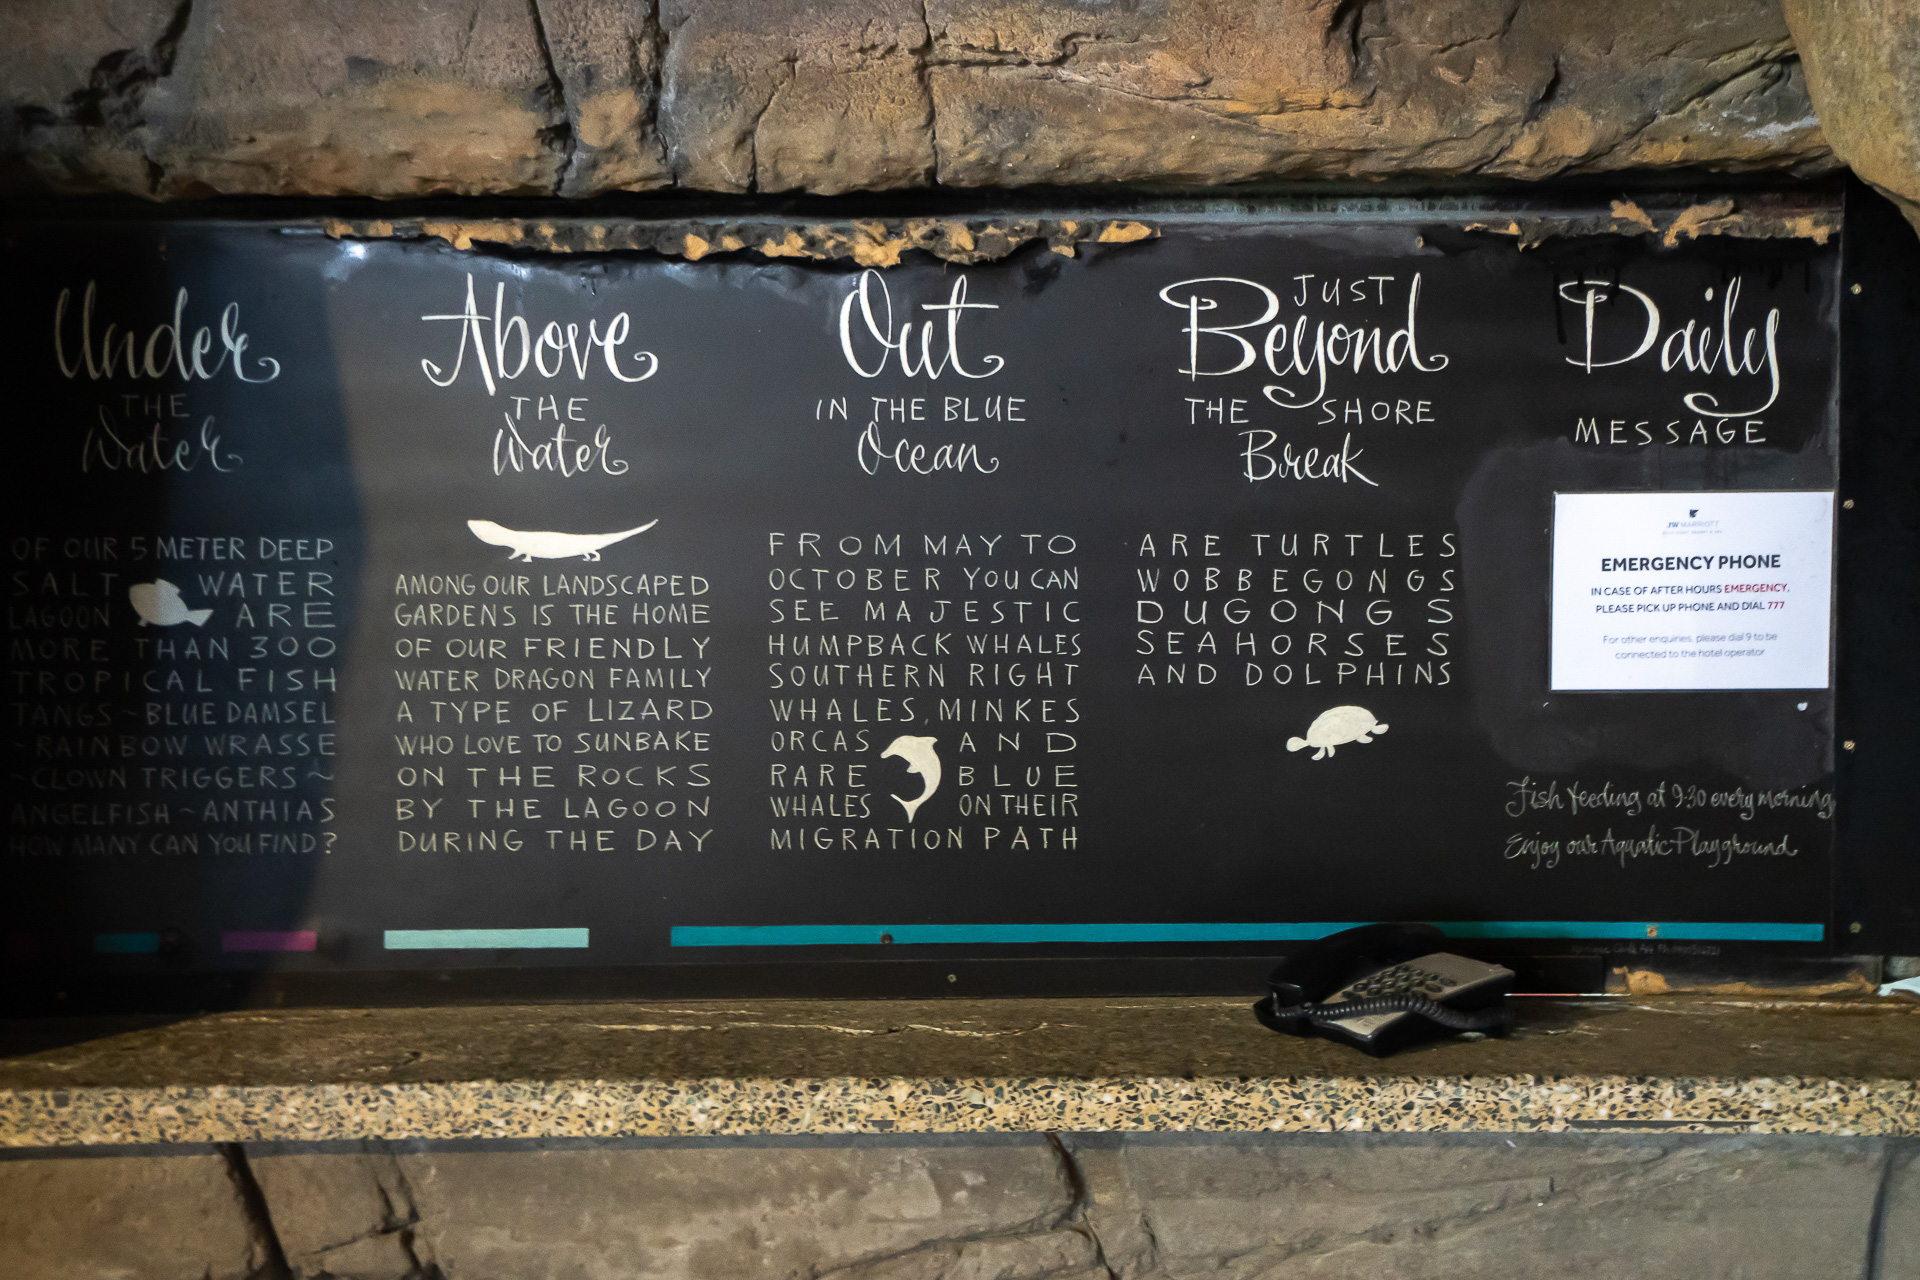 Under
THE
Water
OF OUR 5 METER DEEP
SALT WATER
LAGOON ARE
MORE THAN 300
TROPICAL FISH
TANGS ~ BLUE DAMSEL
~ RAINBOW WRASSE
~ CLOWN TRIGGERS ~
ANGELFISH ~ ANTHIAS
HOW MANY CAN YOU FIND?
Above
THE
Water
AMONG OUR LANDSCAPED
GARDENS IS THE HOME
OF OUR FRIENDLY
WATER DRAGON FAMILY
A TYPE OF LIZARD
WHO LOVE TO SUNBAKE
ON THE ROCKS
BY THE LAGOON
DURING THE DAY
Out
IN THE BLUE
Ocean
FROM MAY TO
OCTOBER YOU CAN
SEE MAJESTIC
HUMPBACK WHALES
SOUTHERN RIGHT
WHALES, MINKES
ORCAS AND
RARE BLUE
WHALES ON THEIR
MIGRATION PATH
JUST
Beyond
THE SHORE
Break
ARE TURTLES
WOBBEGONGS
DUGONGS
SEAHORSES
AND DOLPHINS
Daily
MESSAGE
JW MARRIOTT
EMERGENCY PHONE
IN CASE OF AFTER HOURS EMERGENCY,
PLEASE PICK UP PHONE AND DIAL 777
For other enquiries, please dial 9 to be
connected to the hotel operator
Fish feeding at 9.30 every morning
Enjoy our Aquatic Playground